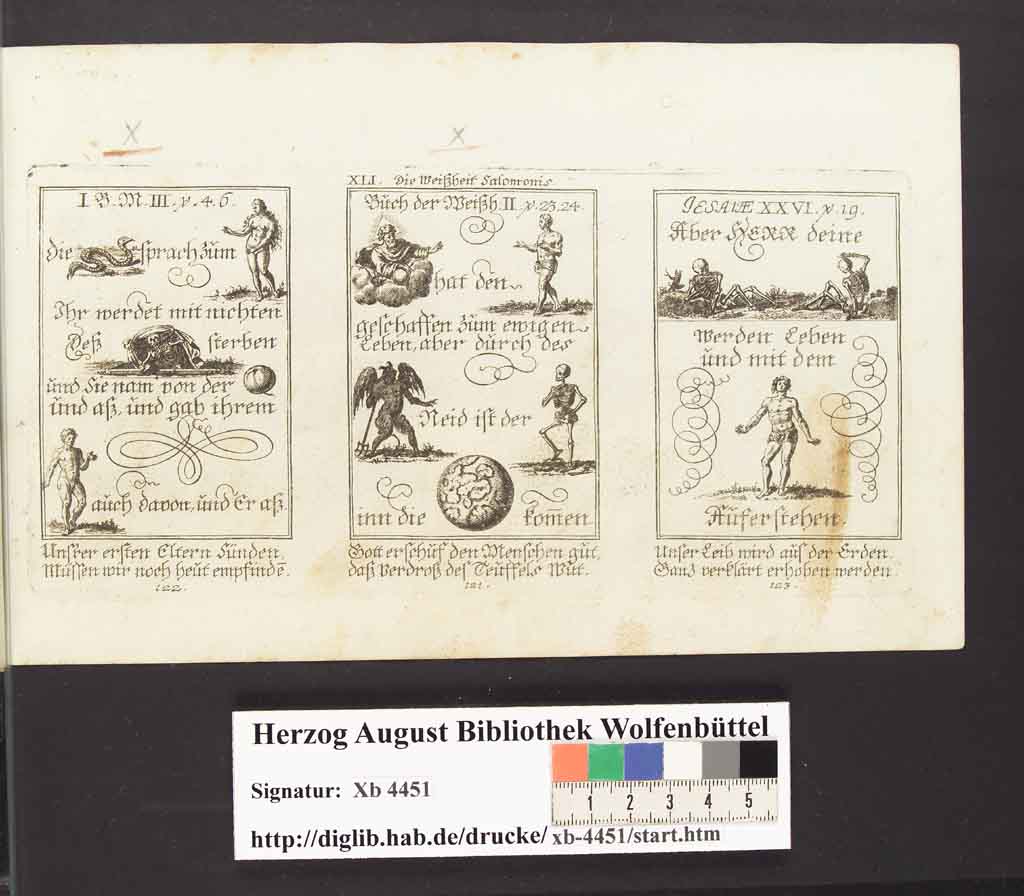 X
X
I. B. M. III. v. 4. 6.
die sprach zum
Ihr werdet mit nichten
Deß sterben
und Sie nam von der
und aß, und gab ihrem
auch davon, und Er aß.
Unsrer ersten Eltern Sünden,
Müssen wir noch heut empfindē.
122.
XLI. Die Weißheit Salomonis
Buch der Weißh. II. v. 23. 24.
hat den
geschaffen zum ewigen
Leben, aber durch des
Neid ist der
inn die kom̄en
Gott erschuf den Menschen gut,
daß verdroß des Teuffels Wut.
121.
JESAIÆ XXVI. v. 19.
Aber HERR deine
werden Leben
und mit dem
Auferstehen.
Unser Leib wird aus der Erden,
Ganz verklärt erhoben werden
123.
Herzog August Bibliothek Wolfenbüttel
Signatur: Xb 4451
1 2 3 4 5
http://diglib.hab.de/drucke/ xb-4451/start.htm